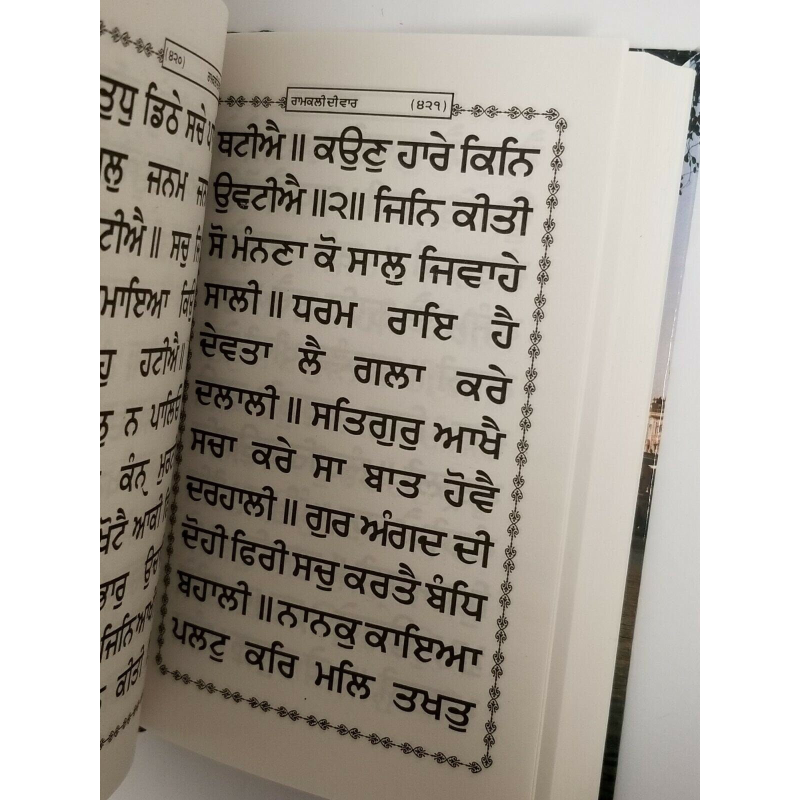 (੪੨੦)
ਤੁਧੁ ਡਿਠੇ ਸਚੇ
ਜਨਮ
ਸਚੁ
ਮਾਇਆ
ਹਟੀਐ॥
ਨ
ਕੰਨੑ
ਖੋਟੈ ਆਕੀ
ਭਾਰੁ
ਕੀਤੀ
ਰਾਮਕਲੀ ਦੀ ਵਾਰ (੪੨੧)
ਥਟੀਐ॥ ਕਉਣੁ ਹਾਰੇ ਕਿਨਿ
ਉਵਟੀਐ॥੨॥ ਜਿਨਿ ਕੀਤੀ
ਸੋ ਮੰਨਣਾ ਕੋ ਸਾਲੁ ਜਿਵਾਹੇ
ਸਾਲੀ॥ ਧਰਮ ਰਾਇ ਹੈ
ਦੇਵਤਾ ਲੈ ਗਲਾ ਕਰੇ
ਦਲਾਲੀ॥ ਸਤਿਗੁਰੁ ਆਖੈ
ਸਚਾ ਕਰੇ ਸਾ ਬਾਤ ਹੋਵੈ
ਦਰਹਾਲੀ॥ ਗੁਰ ਅੰਗਦ ਦੀ
ਦੋਹੀ ਫਿਰੀ ਸਚੁ ਕਰਤੈ ਬੰਧਿ
ਬਹਾਲੀ॥ ਨਾਨਕੁ ਕਾਇਆ
ਪਲਟੁ ਕਰਿ ਮਲਿ ਤਖਤੁ